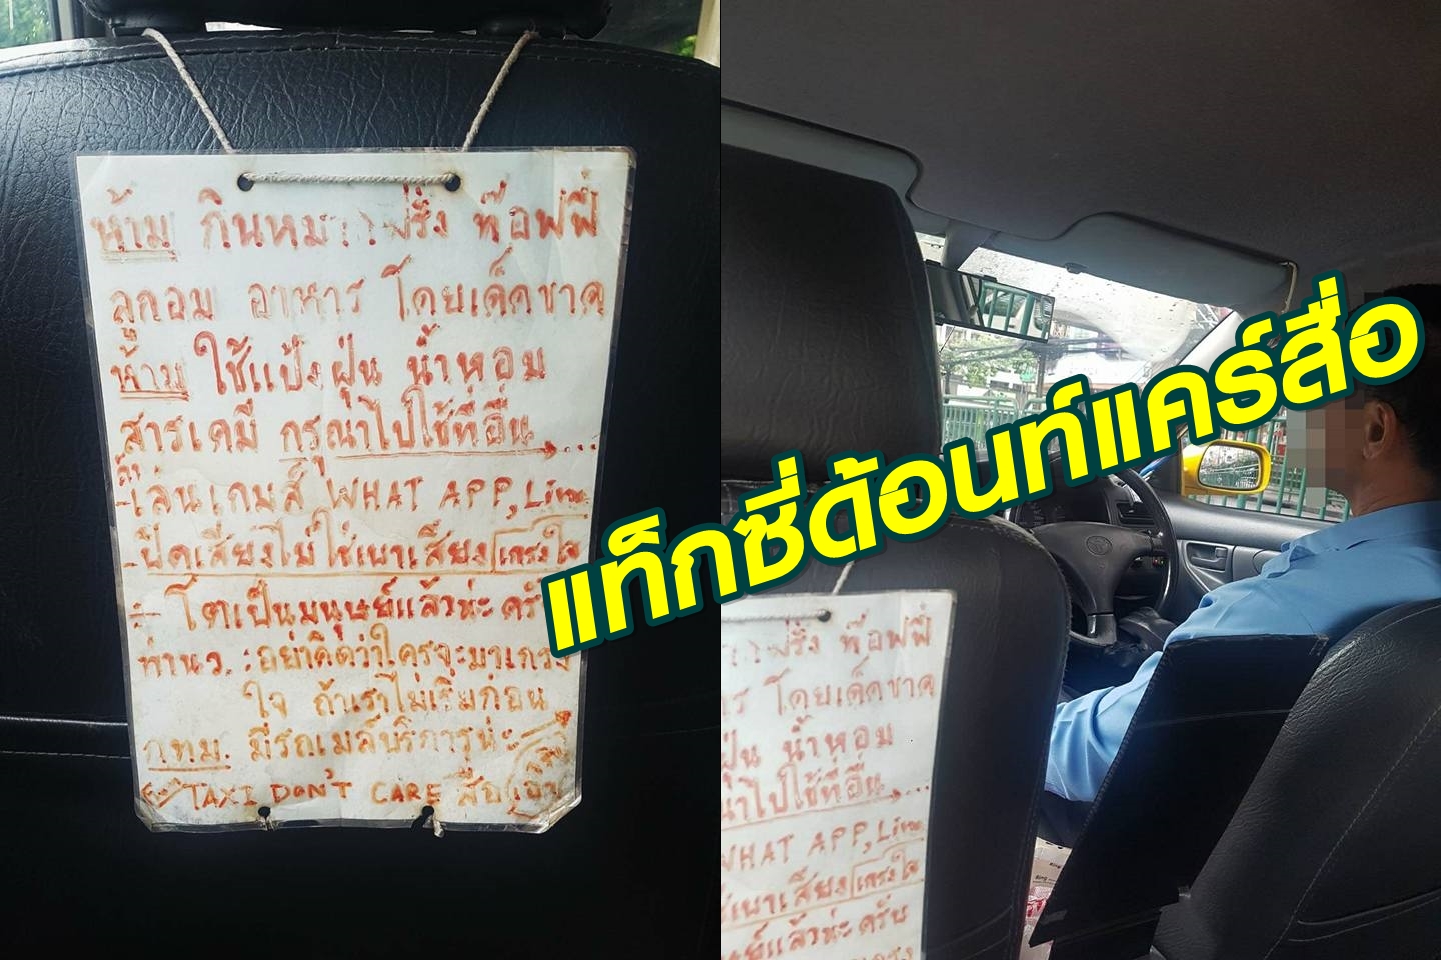 ห้าม กินหมากฝรั่ง ท๊อฟฟี่
ลูกอม อาหาร โดยเด็ดขาด
ห้าม ใช้แป้งฝุ่น น้ำหอม
สารเคมี กรุณาไปใช้ที่อื่น....
-เล่นเกมส์ WHAT APP, Line
-ปิดเสียงไม่ใช่เบาเสียง เกรงใจ
โตเป็นมนุษย์แล้วน่ะครับ
ท่าน ว. : อย่าคิดว่าใครจะมาเกรง
ใจ ถ้าเราไม่เริ่มก่อน
ก.ท.ม. มีรถเมล์บริการน่ะ
TAXI DON'T CARE สื่อ
แท็กซี่ด้อนท์แคร์สื่อ
ฝรั่ง ท๊อฟฟี่
โดยเด็ดขาด
ฝุ่น น้ำหอม
ณาไปใช้ที่อื่น...
WHAT APP, Line
ใช่เบาเสียง เกรงใจ
ษย์แล้วน่ะครับ